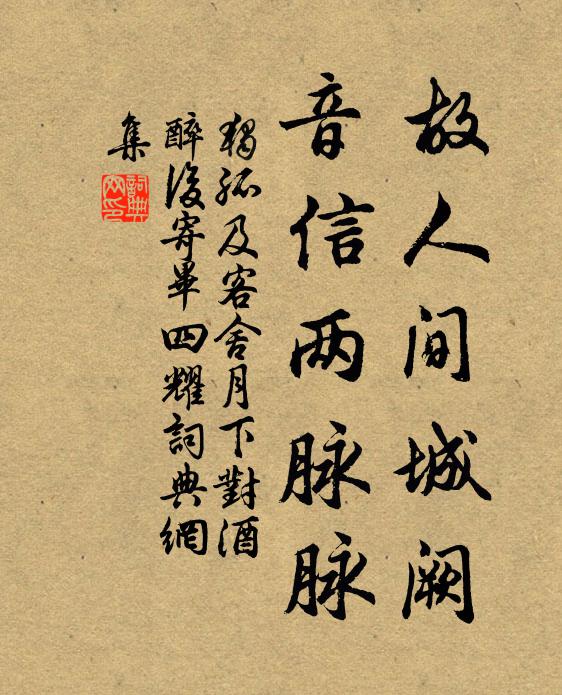 故人间城阙
音信两脉脉
獨孤及客舍月下對酒
醉後寄畢四耀詞典網
集
詞典网印